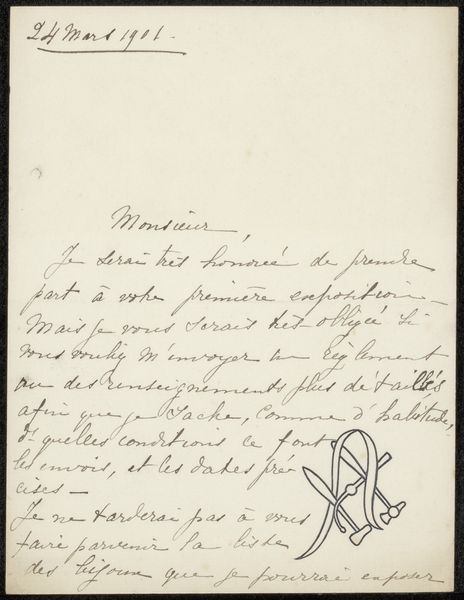 24 Mars 1901 -
Monsieur,
Je serai très honorée de prendre
part à votre première exposition -
Mais je vous serais très obligée si
vous vouliez m'envoyer un règlement
ou des renseignements plus détaillés
afin que je sache, comme d'habitude,
ds quelles conditions ce font
les envois, et les dates pré
cises -
Je ne tarderai pas à vous
faire parvenir la liste
des bijoux que je pourrai exposer